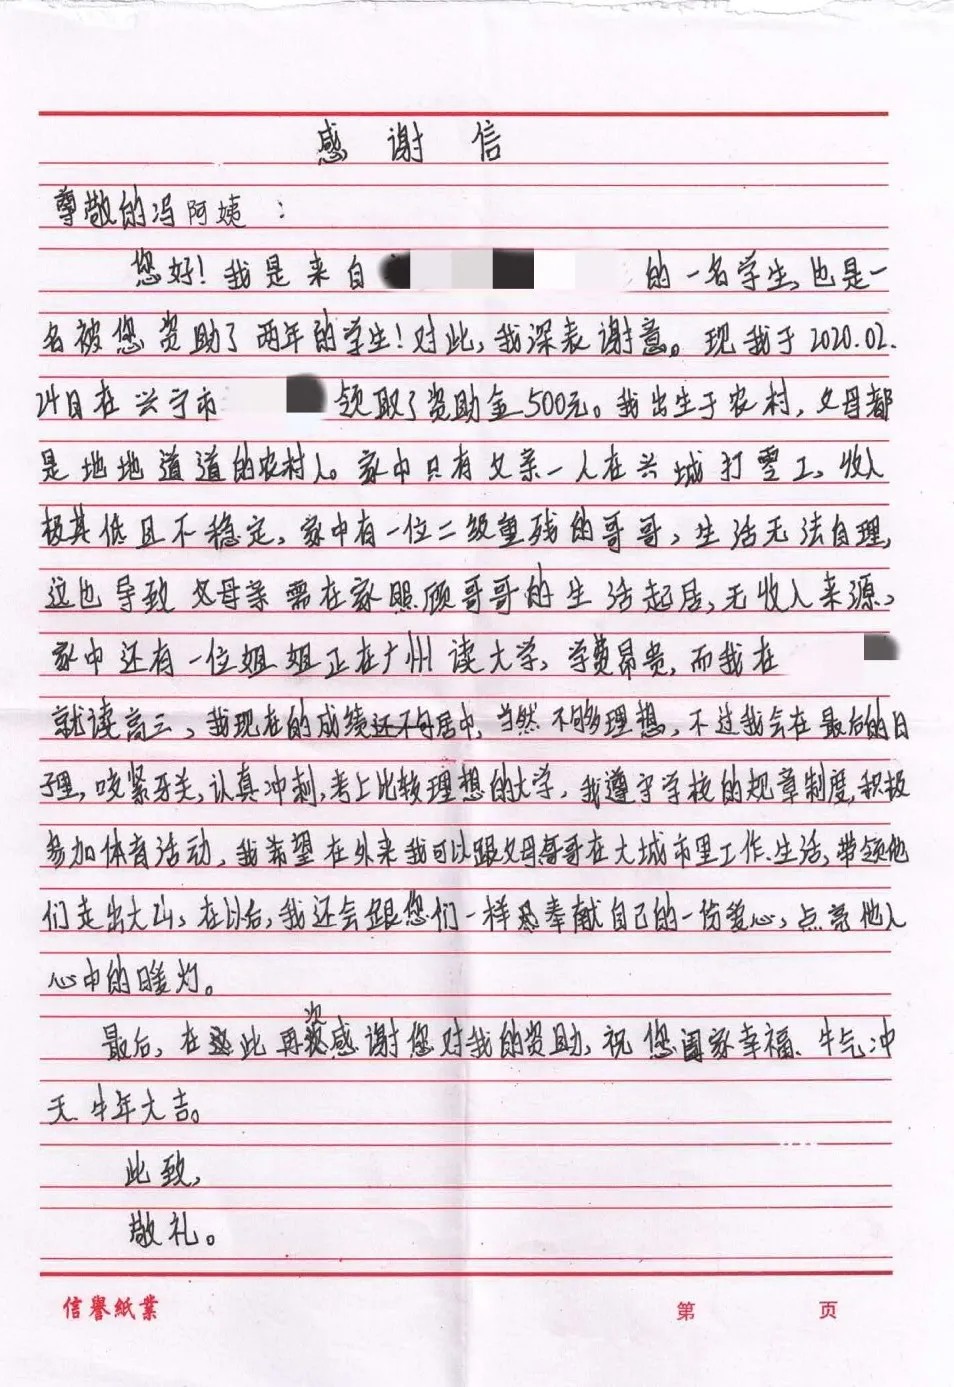 感谢信
尊敬的冯阿姨：
您好！我是来自的一名学生，也是一
名被您资助了两年的学生！对此，我深表谢意。现我于2020.02.
24日在兴宁市领取了资助金500元。我出生于农村，父母都
是地地道道的农村人。家中只有父亲一人在兴城打零工，收入
极其低且不稳定，家中有一位二级重残的哥哥，生活无法自理，
这也导致父母亲需在家照顾哥哥的生活起居，无收入来源，
家中还有一位姐姐正在广州读大学，学费昂贵，而我在
就读高三，我现在的成绩还不居中，当然不够理想，不过我会在最后的日
子里，咬紧牙关，认真冲刺，考上比较理想的大学，我遵守学校的规章制度，积极
参加体育活动，我希望在外来我可以跟父母哥哥在大城市里工作、生活，带领他
们走出大山，在以后，我还会跟您们一样奉献自己的一份爱心，点亮他人
心中的暖灯。
最后，在此再次感谢您对我的资助，祝您阖家幸福、牛气冲
天、牛年大吉。
此致，
敬礼。
信譽紙業 第 页